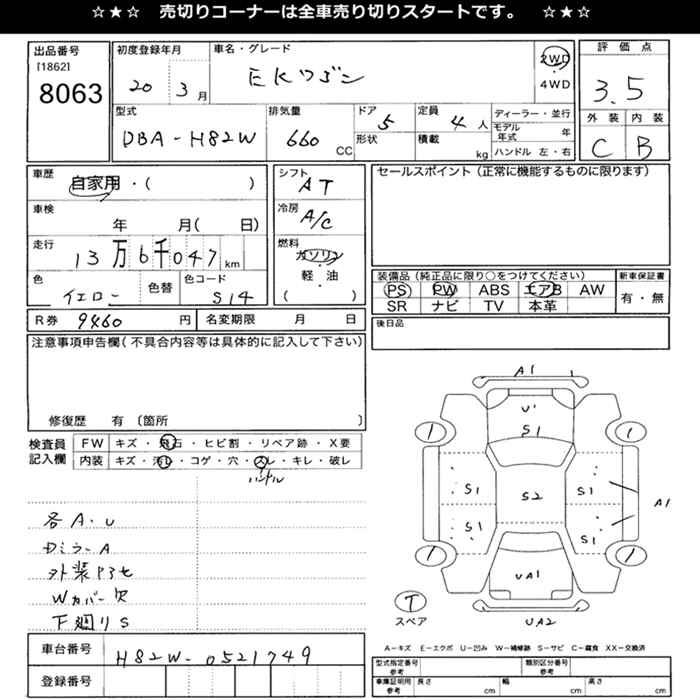 ☆★☆ 売切りコーナーは全車売り切りスタートです。 ☆★☆
出品番号
[1862]
8063
初度登録年月
20 3月
車名・グレード
EKワゴン
2WD
4WD
評価点
3.5
外装 内装
C B
型式
DBA-H82W
排気量
660 CC
ドア
5
形状
定員
4人
積載
kg
ディーラー・並行
モデル年式 年
ハンドル 左・右
車歴
自家用・( )
車検
年 月( 日)
走行
13万6千047km
色
イエロー
色替
色コード
S14
シフト
AT
冷房
A/C
燃料
ガソリン
軽・油
( )
セールスポイント(正常に機能するものに限ります)
装備品(純正品に限り○をつけてください)
PS PW ABS エアB AW
SR ナビ TV 本革
新車保証書
有・無
R券 9460円
名変期限 月 日
後日品
注意事項申告欄(不具合内容等は具体的に記入して下さい)
修復歴 有〔箇所 〕
検査員記入欄
FW キズ・飛石・ヒビ割・リペア跡・X要
内装 キズ・汚れ・コゲ・穴・スレ・キレ・破レ
ハンドル
各A.U
DミラーA
外装アセ
Wカバー欠
下廻りS
A1
U1
S1
1 1
S1 S2 S1
S1 S1
A1
1 1
UA1
T
スペア
UA2
A-キズ E-エクボ U-凹み W-補修跡 S-サビ C-腐食 XX-交換済
車台番号 H82W-0521749
登録番号
型式指定番号参考
類別区分番号
車庫証明用参考 長さ cm 幅 cm 高さ cm